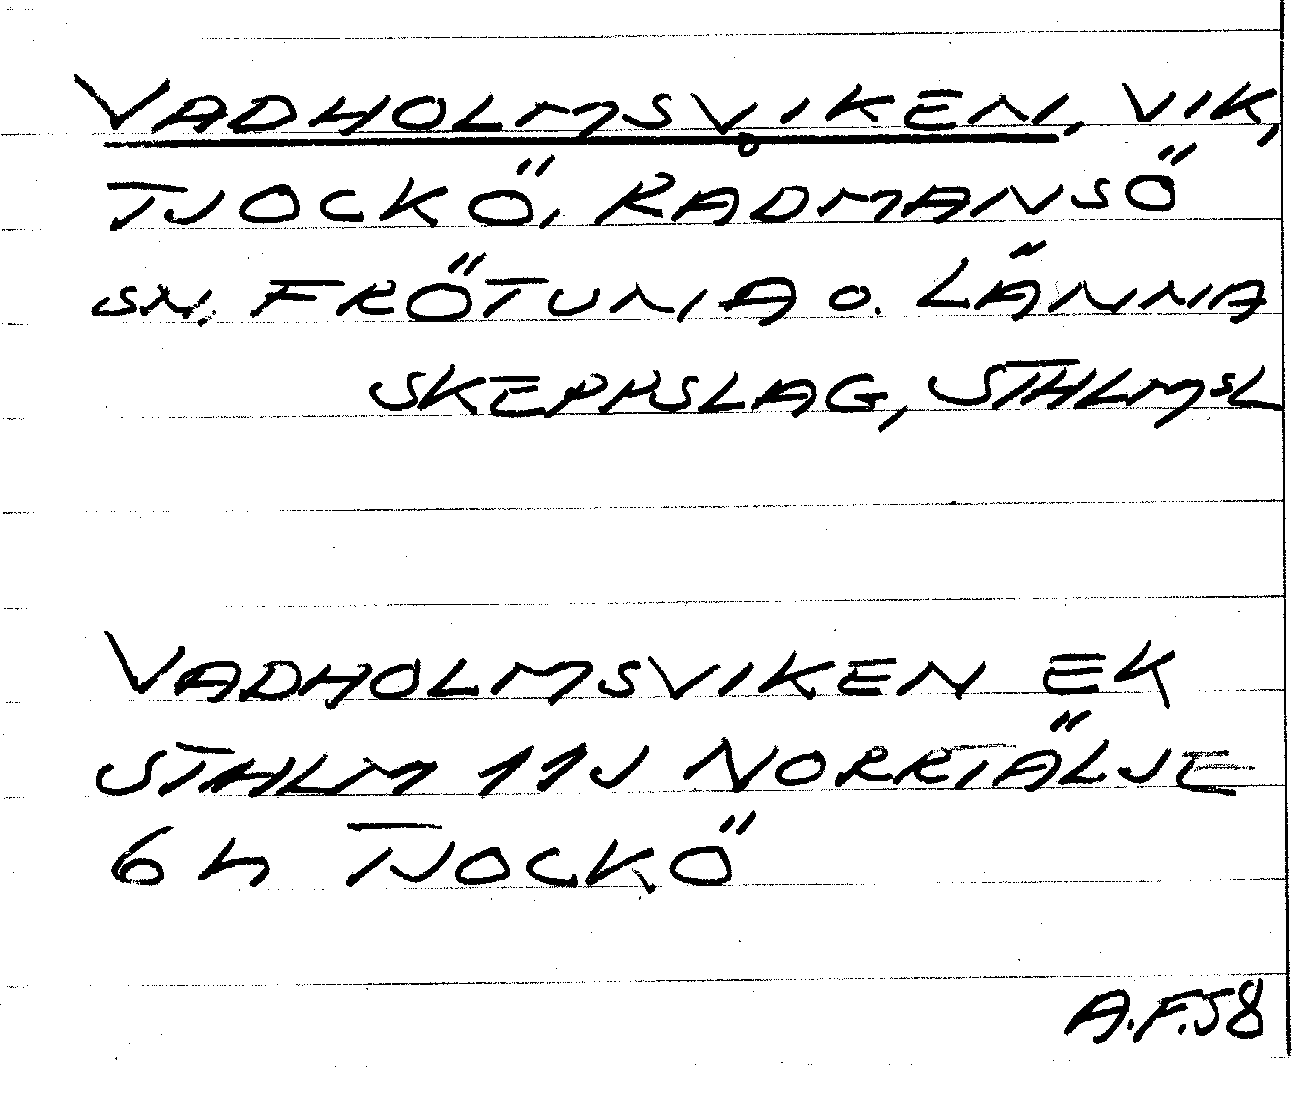 VADHOLMSVIKEN, VIK,
TJOCKÖ, RÅDMANSÖ
SN, FRÖTUNA O. LÄNNA
SKEPPSLAG, STHLMSL
VADHOLMSVIKEN EK
STHLM 11J NORRTÄLJE
6h TJOCKÖ
A.F.58